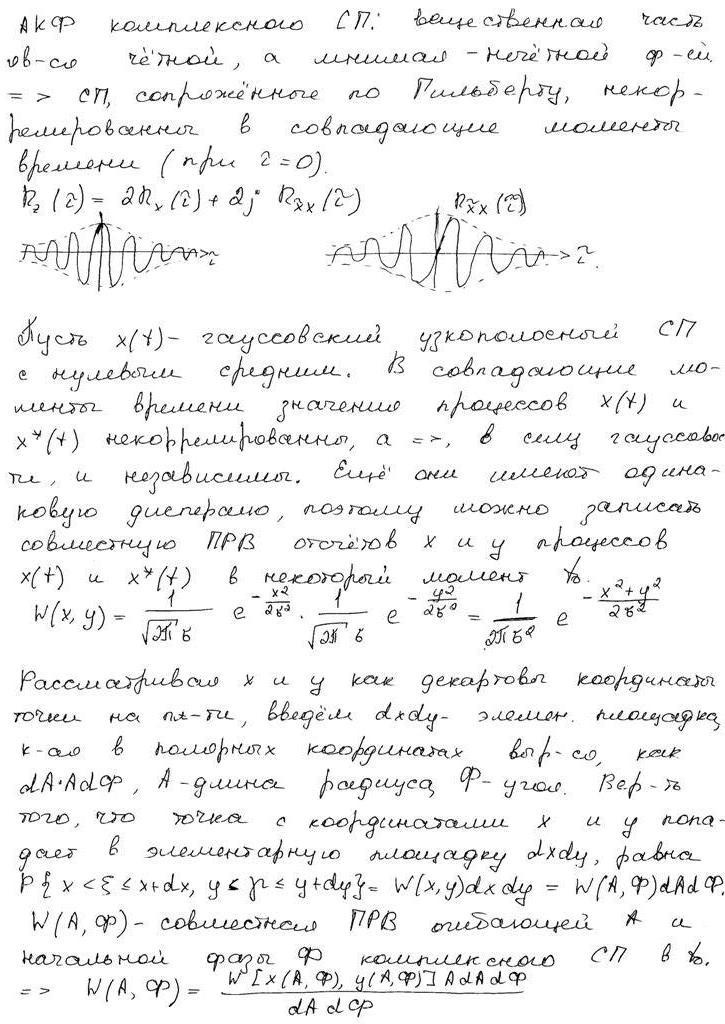 АКФ комплексного СП: вещественная часть
яв-ся чётной, а мнимая - нечётной ф-ей.
=> СП, сопряжённые по Гильберту, некор-
релированны в совпадающие моменты
времени (при τ=0).
R_z(τ) = 2R_x(τ) + 2j R_x̃x(τ)
R_x̃x(τ)
τ
τ
Пусть x(t) - гауссовский узкополосный СП
с нулевым средним. В совпадающие мо-
менты времени значения процессов x(t) и
x*(t) некоррелированны, а =>, в силу гауссовос
ти, и независимы. Ещё они имеют одина-
ковую дисперсию, поэтому можно записать
совместную ПРВ отсчётов x и y процессов
x(t) и x*(t) в некоторый момент t₀.
W(x, y) = 1/(√2π σ) e^(-x²/2σ²) · 1/(√2π σ) e^(-y²/2σ²) = 1/(2πσ²) e^(-(x²+y²)/2σ²)
Рассматривая x и y как декартовы координаты
точки на пл-ти, введём dxdy - элемен. площадка,
к-ая в полярных координатах выр-ся, как
dA·AdФ, A - длина радиуса, Ф - угол. Вер-ть
того, что точка с координатами x и y попа-
дает в элементарную площадку dxdy, равна
P{x<ξ≤x+dx, y<η≤y+dy} = W(x,y)dxdy = W(A,Ф)dAdФ.
W(A, Ф) - совместная ПРВ огибающей A и
начальной фазы Ф комплексного СП в t₀.
=> W(A, Ф) = W[x(A,Ф), y(A,Ф)] AdAdФ / dAdФ